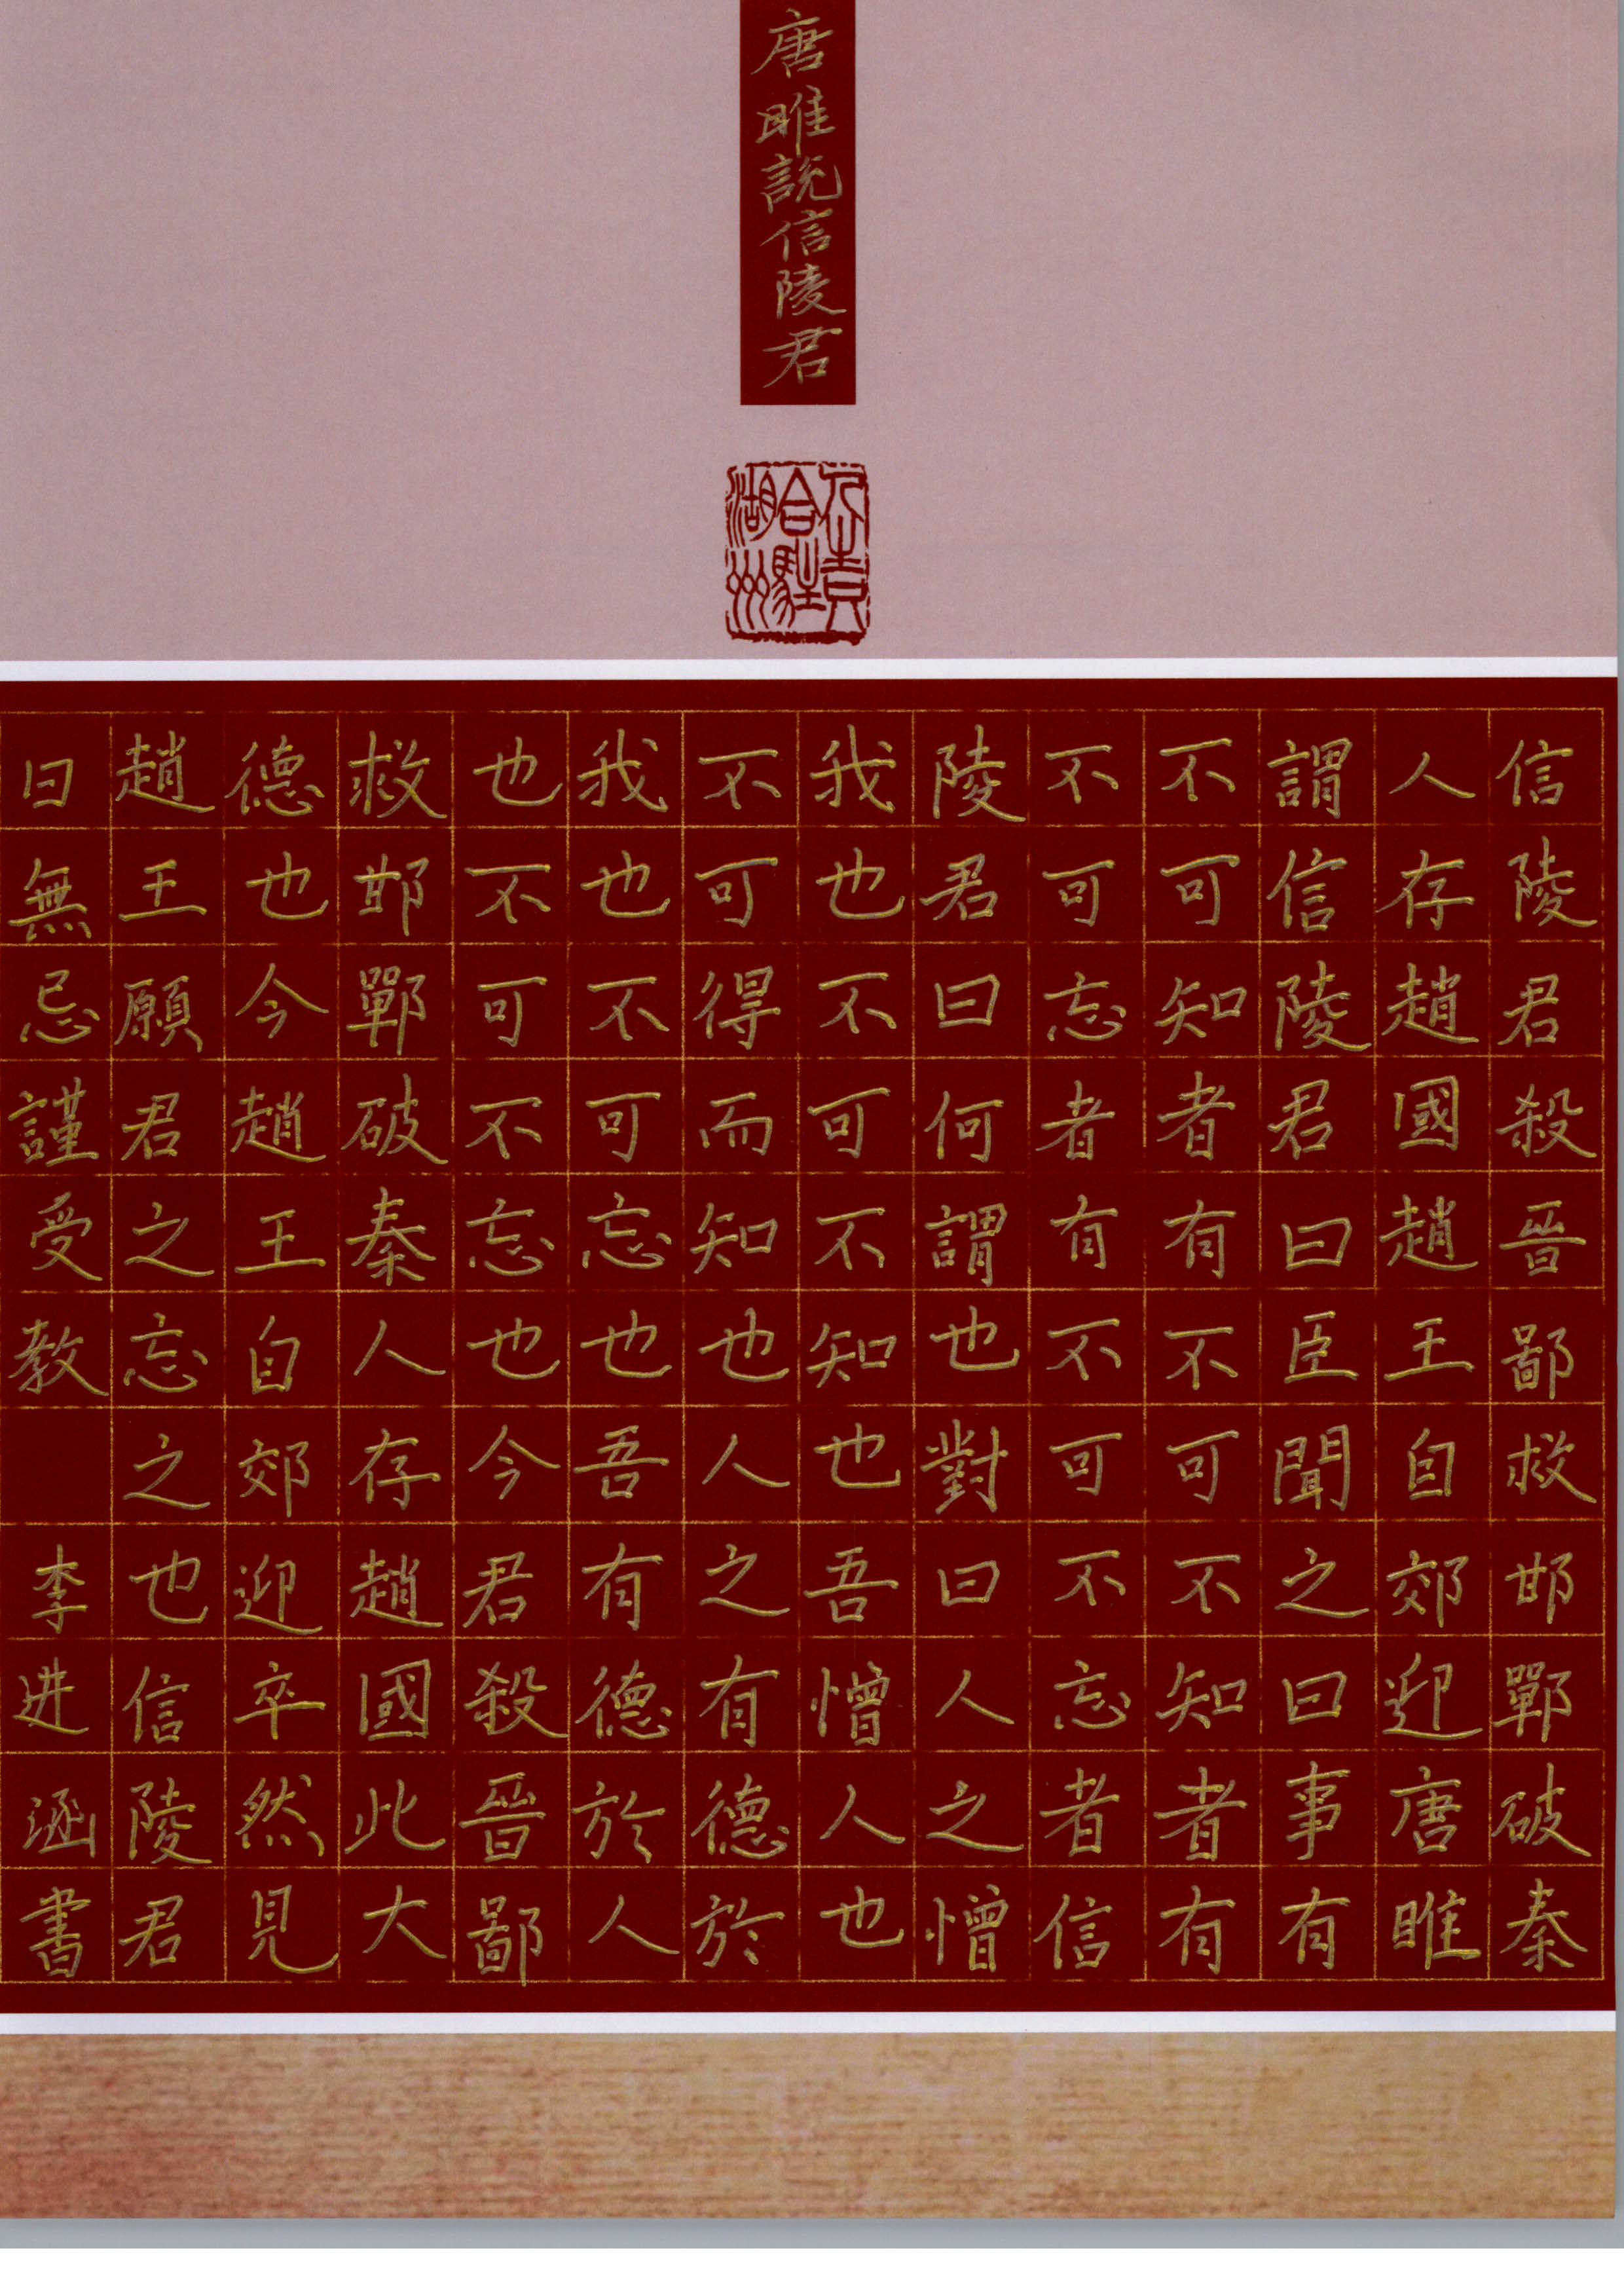 唐雎說信陵君
信陵君殺晉鄙救邯鄲破秦
人存趙國趙王自郊迎唐雎
謂信陵君曰臣聞之曰事有
不可知者有不可不知者有
不可忘者有不可不忘者信
陵君曰何謂也對曰人之憎
我也不可不知也吾憎人也
不可得而知也人之有德於
我也不可忘也吾有德於人
也不可不忘也今君殺晉鄙
救邯鄲破秦人存趙國此大
德也今趙王自郊迎卒然見
趙王願君之忘之也信陵君
曰無忌謹受教 李进涵書